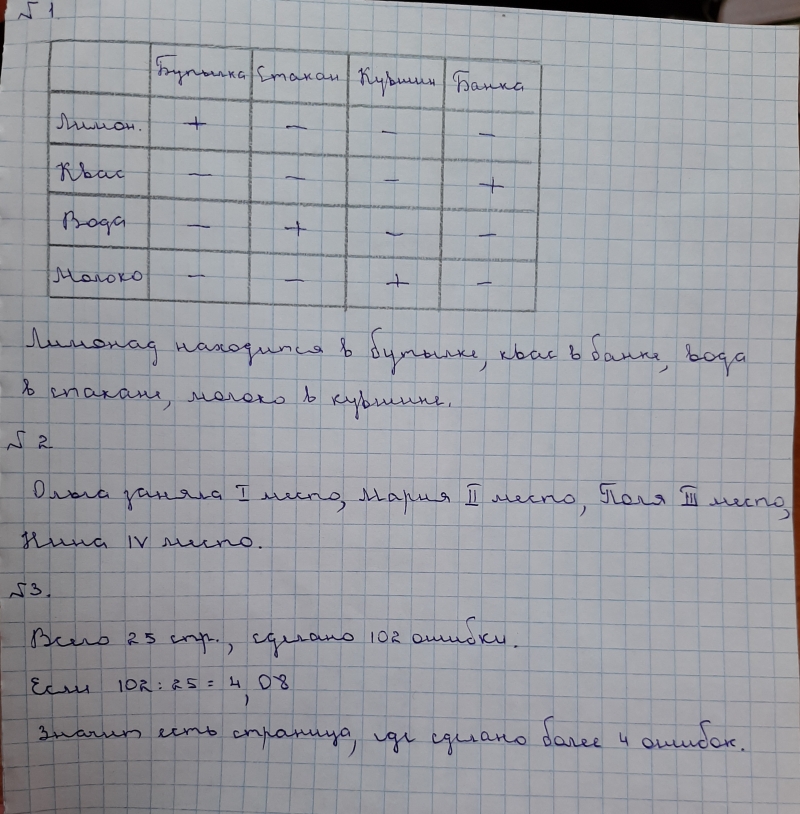 № 1
Бутылка Стакан Кувшин Банка
Лимон. + – – –
Квас – – – +
Вода – + – –
Молоко – – + –
Лимонад находится в бутылке, квас в банке, вода
в стакане, молоко в кувшине.
№ 2
Ольга заняла I место, Мария II место, Поля III место,
Нина IV место.
№3.
Всего 25 стр., сделано 102 ошибки.
Если 102 : 25 = 4,08
Значит есть страница, где сделано более 4 ошибок.